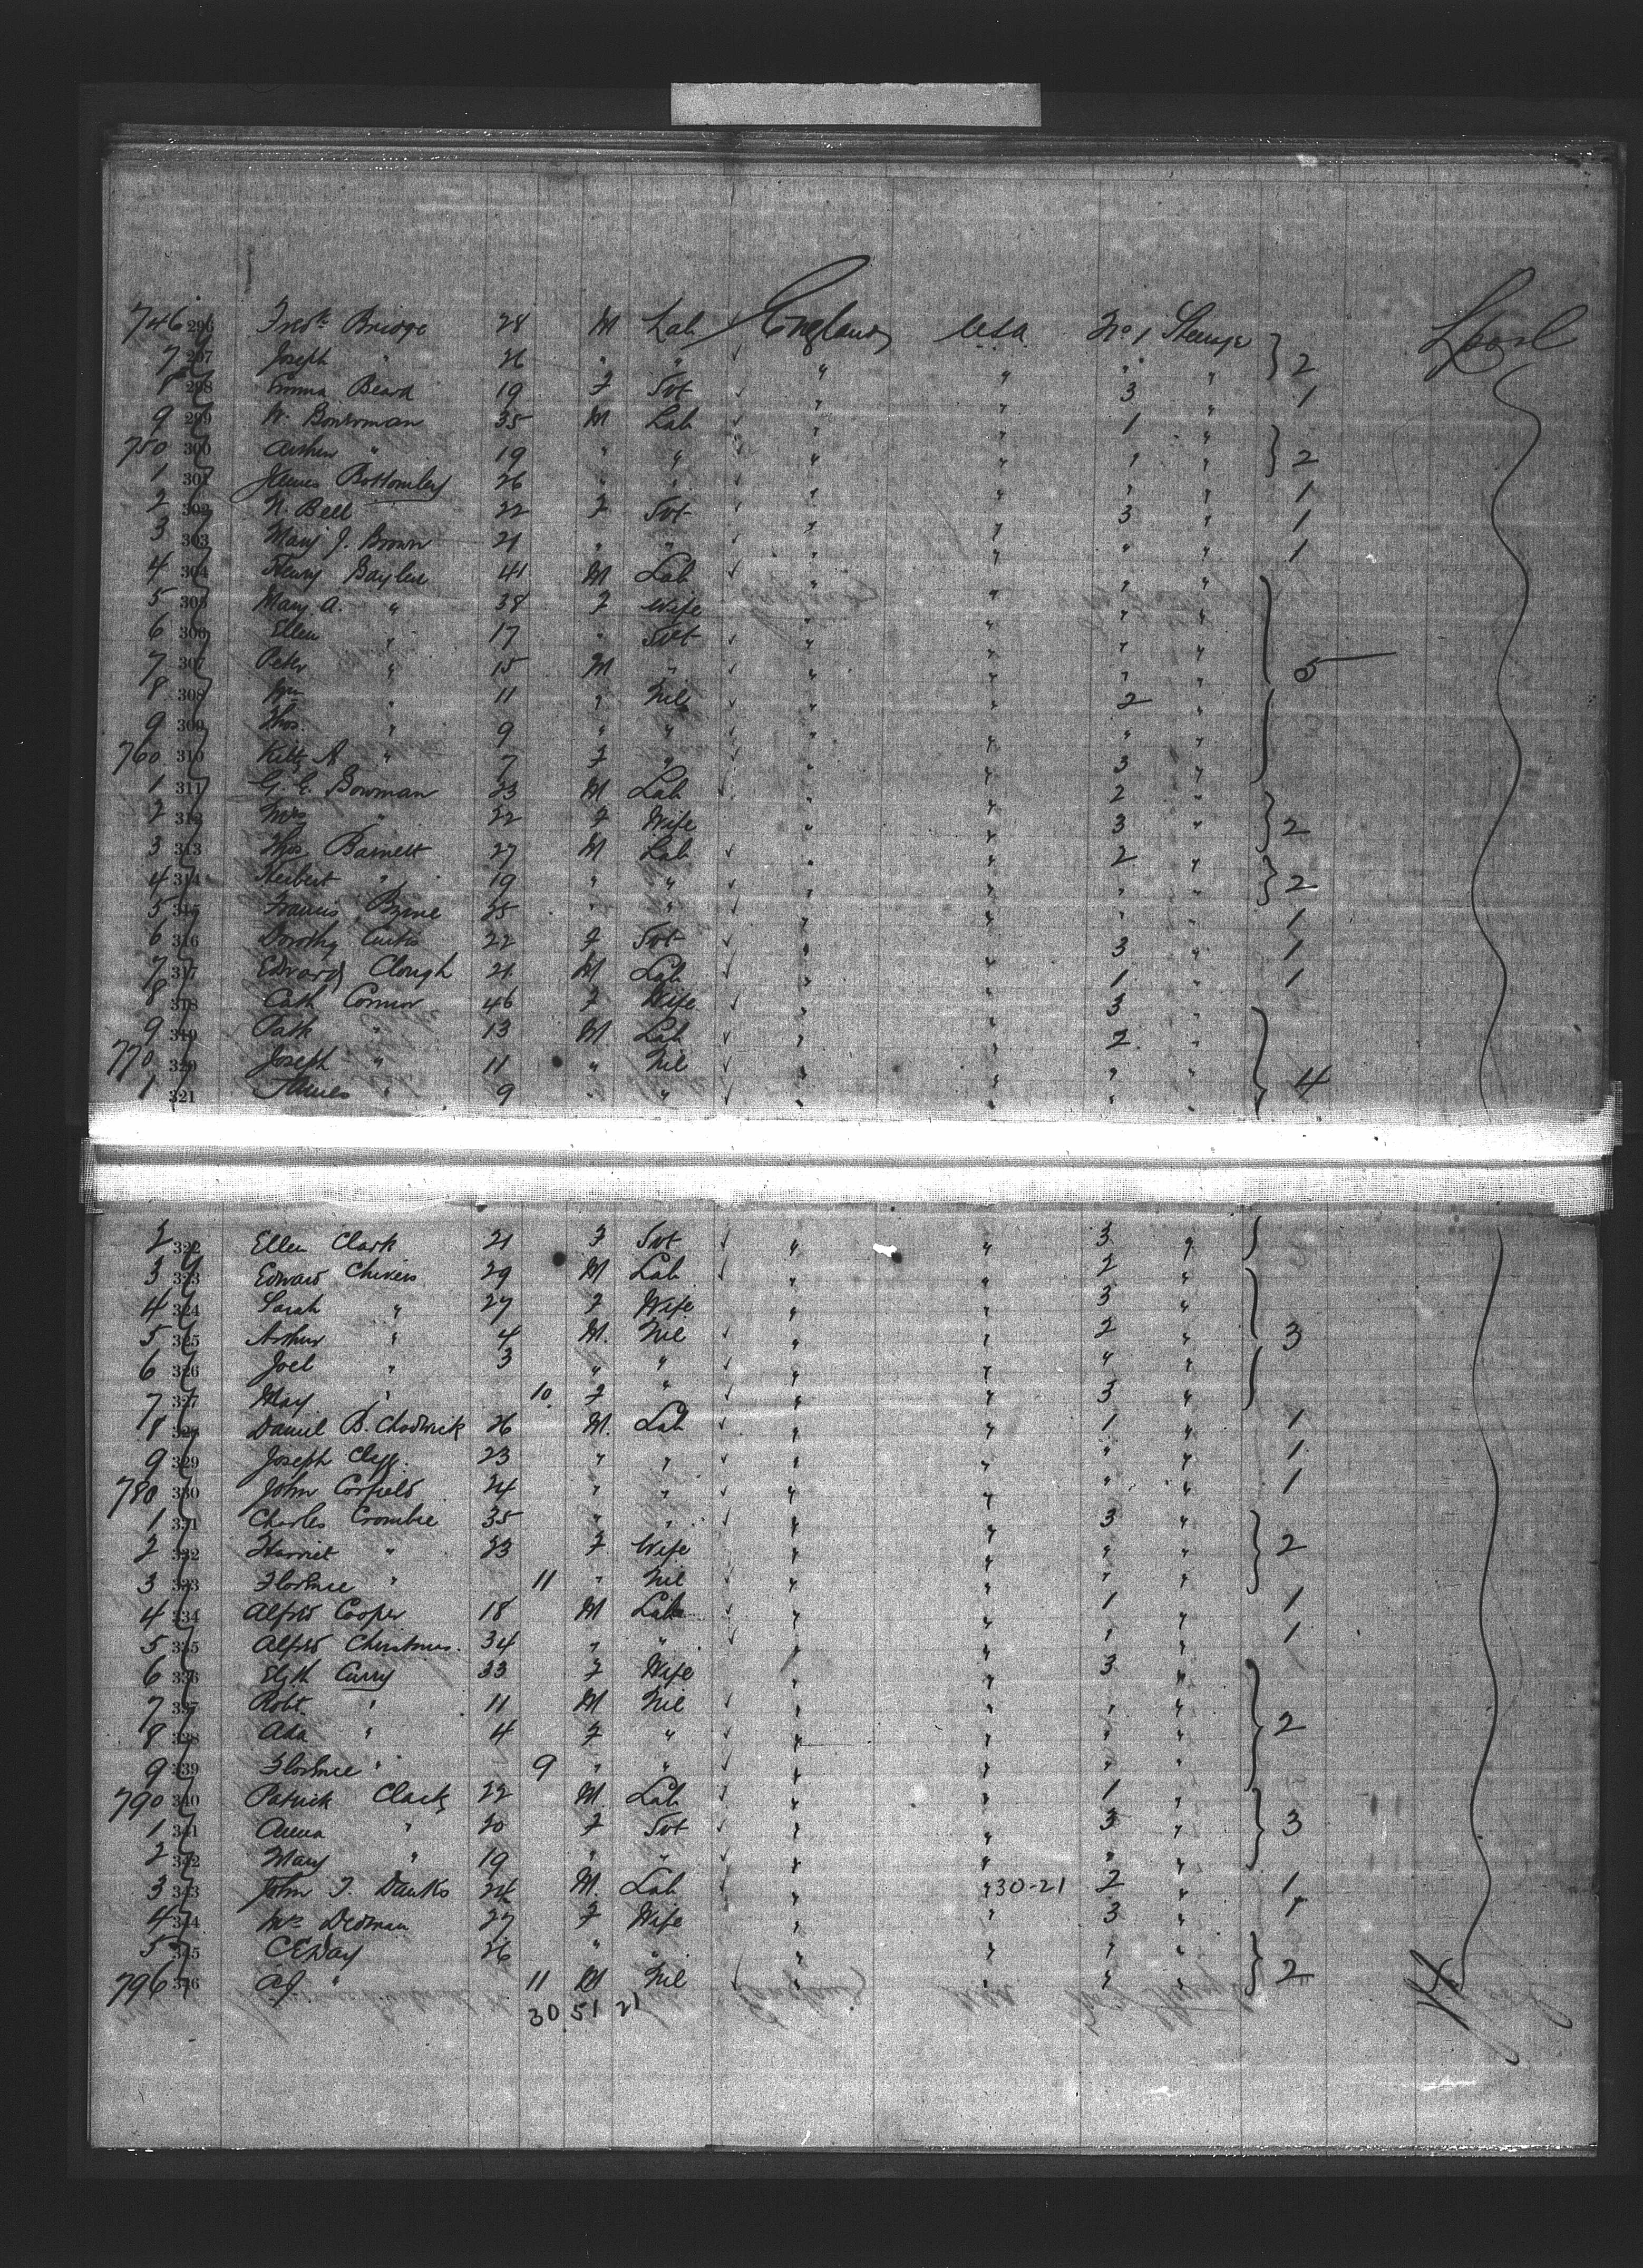 746 296 Fredk Bridge 28 M Lab England USA No 1 Steerage L'pool
7 297 Joseph " 26 " " " " " " 2
8 298 Emma Beard 19 F Svt " " 3 " 1
9 299 W. Bowman 35 M Lab " " 1 "
750 300 Arthur " 19 " " " " " " 2
1 301 James Bottomley 26 " " " " " " 1
2 302 N. Bell 22 F Svt " " 3 " 1
3 303 Mary J. Brown 21 " " " " " " 1
4 304 Henry 41 M Lab " " " "
5 305 Mary A. " 38 F Wife " " " "
6 306 Ellen " 17 " Svt " " " "
7 307 Peter " 15 M " " " " " 5
8 308 Wm " 11 " Nil " " 2 "
9 309 Thos. " 9 " " " " " "
760 310 " 7 F " " " 3 "
1 311 G. E. Bowman 23 M Lab " " 2 "
2 312 Mrs " 22 F Wife " " 3 " 2
3 313 Thos. Barnett 27 M Lab " " 2 "
4 314 Herbert " 19 " " " " " " 2
5 315 Francis Byrne 25 " " " " " " 1
6 316 Dorothy Curtis 22 F Svt " " 3 " 1
7 317 Edward Clough 21 M Lab " " 1 " 1
8 318 Cath Connor 46 F Wife " " 3 "
9 319 Patk " 13 M Lab " " 2 "
770 320 Joseph " 11 " Nil " " " " 4
1 321 James " 9 " " " " " "
2 322 Ellen Clark 21 F Svt " " 3 "
3 323 Edward Chivers 29 M Lab " " 2 "
4 324 Sarah " 27 F Wife " " 3 "
5 325 Arthur " 4 M. Nil " " 2 " 3
6 326 Joel " 3 " " " " " "
7 327 May " 10 F " " " 3 "
8 328 Daniel B. Chadwick 26 M. Lab " " 1 " 1
9 329 Joseph Clegg. 23 " " " " " " 1
780 330 John Corfield 24 " " " " " " 1
1 331 Charles Crombie 35 " " " " 3 "
2 332 Harriet " 23 F Wife " " " " 2
3 333 Florence " 11 " Nil " " " "
4 334 Alfred Cooper 18 M Lab " " 1 " 1
5 335 Alfred Christmas. 34 " " " " " " 1
6 336 Elzth Curry 33 F Wife " " 3 "
7 337 Robt. " 11 M Nil " " " "
8 338 Ada " 4 F " " " " " 2
9 339 Florence " 9 " " " " " "
790 340 Patrick Clark 22 M. Lab " " 1 "
1 341 Anna " 20 F Svt " " 3 " 3
2 342 Mary " 19 " " " " " "
3 343 John T. Danks 24 M. Lab " " 30-21 2 " 1
4 344 Mrs Dedman 27 F Wife " " 3 " 1
5 345 C E Day 26 " " " " " "
796 346 A J. " 11 M Nil " " " " 2
30 51 21